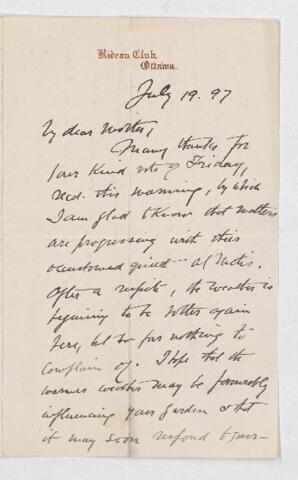 Rideau Club,
Ottawa.
July 19. 97
My dear Mother,
Many thanks for
your kind note of Friday,
recd. this morning, by which
I am glad to know that matters
are progressing with their
accustomed quiet at Metis.
After a respite, the weather is
beginning to be hotter again
here, but so far nothing to
complain of. I hope that the
warmer weather may be favourably
influencing your garden & that
it may soon respond to your